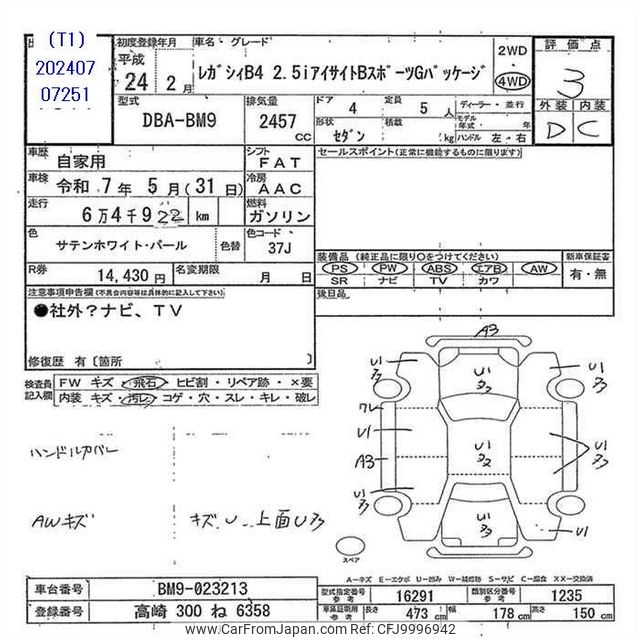 (T1)
202407
07251
初度登録年月
車名・グレード
平成
24 2 月
レガシィB4 2.5iアイサイトBスポーツGパッケージ
2WD
・
4WD
評価点
3
外装 内装
D C
型式
DBA-BM9
排気量
2457
CC
ドア
4
定員
5 人
形状
セダン
積載
kg
ディーラー・並行
モデル
年式 年
ハンドル 左・右
車歴
自家用
シフト
FAT
車検
令和 7 年 5 月 (31 日)
冷房
AAC
走行
6 万 4 千 9 22 km
燃料
ガソリン
色
サテンホワイト・パール
色替
色コード
37J
R券
14,430 円
名変期限
月 日
セールスポイント(正常に機能するものに限ります)
装備品 (純正品に限り○をつけてください)
新車保証書
PS PW ABS エアB AW
有・無
SR ナビ TV カワ
後日品
注意事項申告欄(不具合内容等は具体的に記入して下さい)
●社外?ナビ、TV
修復歴 有 [箇所 ]
検査員
記入欄
FW キズ・飛石・ヒビ割・リペア跡・×要
内装 キズ・汚レ・コゲ・穴・スレ・キレ・破レ
ハンドルカバー
AWキズ
キズ U 上面Uヌ
A3
U1
U1
U1
ワレ
U1
U1
U1
A3
U1
U1
U1
スペア
A-キズ E-エクボ U-凹み W-補修跡 S-サビ C-腐食 XX-交換済
車台番号
BM9-023213
登録番号
高崎 300 ね 6358
型式指定番号
参考
16291
類別区分番号
参考
1235
車庫証明用
参考
長さ
473 cm
幅
178 cm
高さ
150 cm
www.CarFromJapan.com - Ref: CFJ9996942